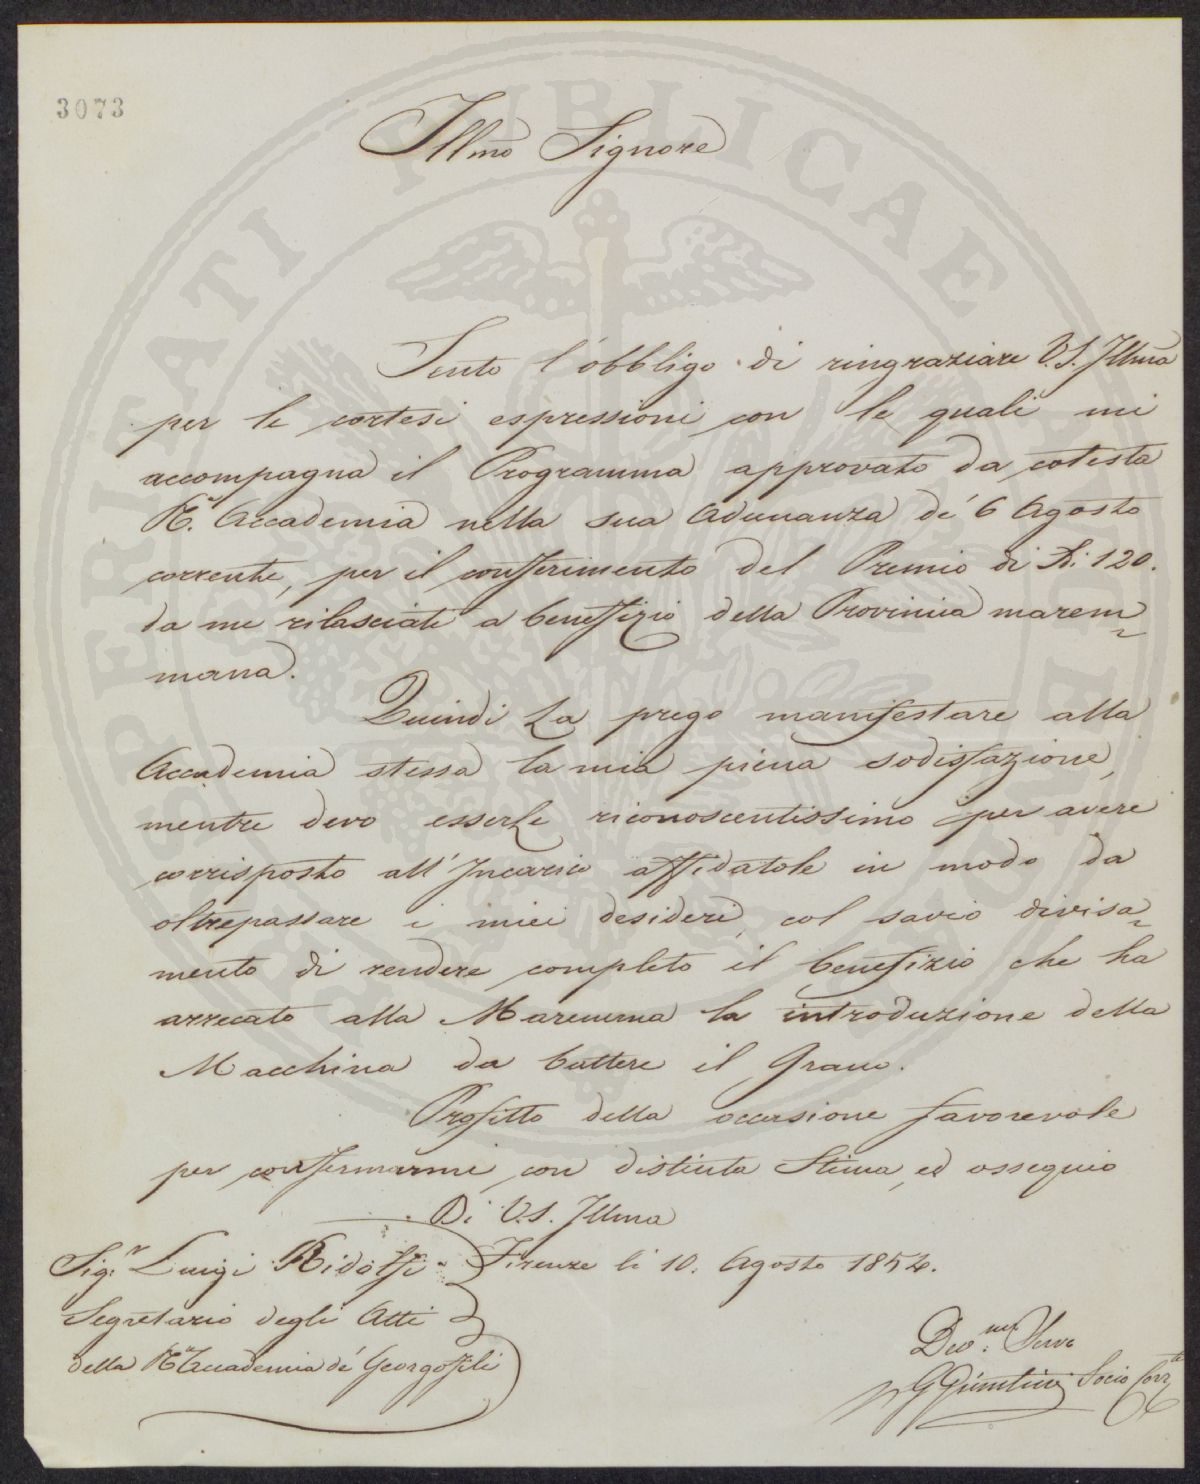 3073
Illmo Signore
Sento l'obbligo di ringraziare V.S. Illma
per le cortesi espressioni con le quali mi
accompagna il Programma approvato da cotesta
R. Accademia nella sua Adunanza de' 6 Agosto
corrente, per il conferimento del Premio di 120.
da me rilasciati a benefizio della Provincia marem=
mana.
Quindi La prego manifestare alla
Accademia stessa la mia piena sodisfazione,
mentre devo esserLe riconoscentissimo per avere
corrisposto all'Incarico affidatole in modo da
oltrepassare i miei desideri, col savio divisa=
mento di rendere completo il benefizio che ha
arrecato alla Maremma la introduzione della
Macchina da battere il Grano.
Profitto della occasione favorevole
per confermarmi con distinta Stima, ed ossequio
Di V.S. Illma
Firenze li 10. Agosto 1854.
Sig.r Luigi Ridolfi
Segretario degli Atti
della R. Accademia de' Georgofili
Dev.mo Servo
Giuntini Socio Corr.te
PROSPERITATI PUBLICAE AUGENDAE